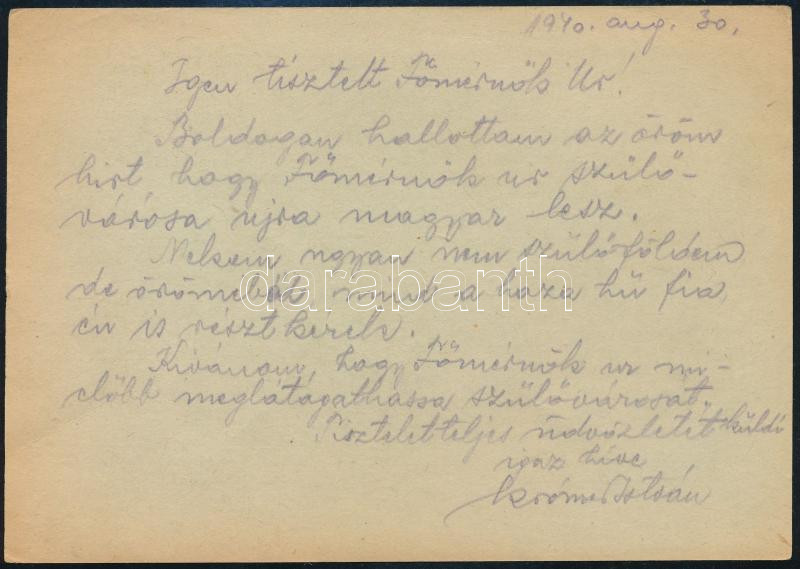 1940. aug. 30.
Igen tisztelt Főmérnök Ur!
Boldogan hallottam az öröm
hirt, hogy Főmérnök ur szülő-
városa ujra magyar lesz.
Nekem ugyan nem szülőföldem
de örömeból, mint a haza hű fia,
én is részt kérek.
Kivánom, hogy Főmérnök ur mi-
előbb meglátogathassa szülővárosát.
Tiszteletteljes üdvözletét küldi
igaz híve
István
darabanth